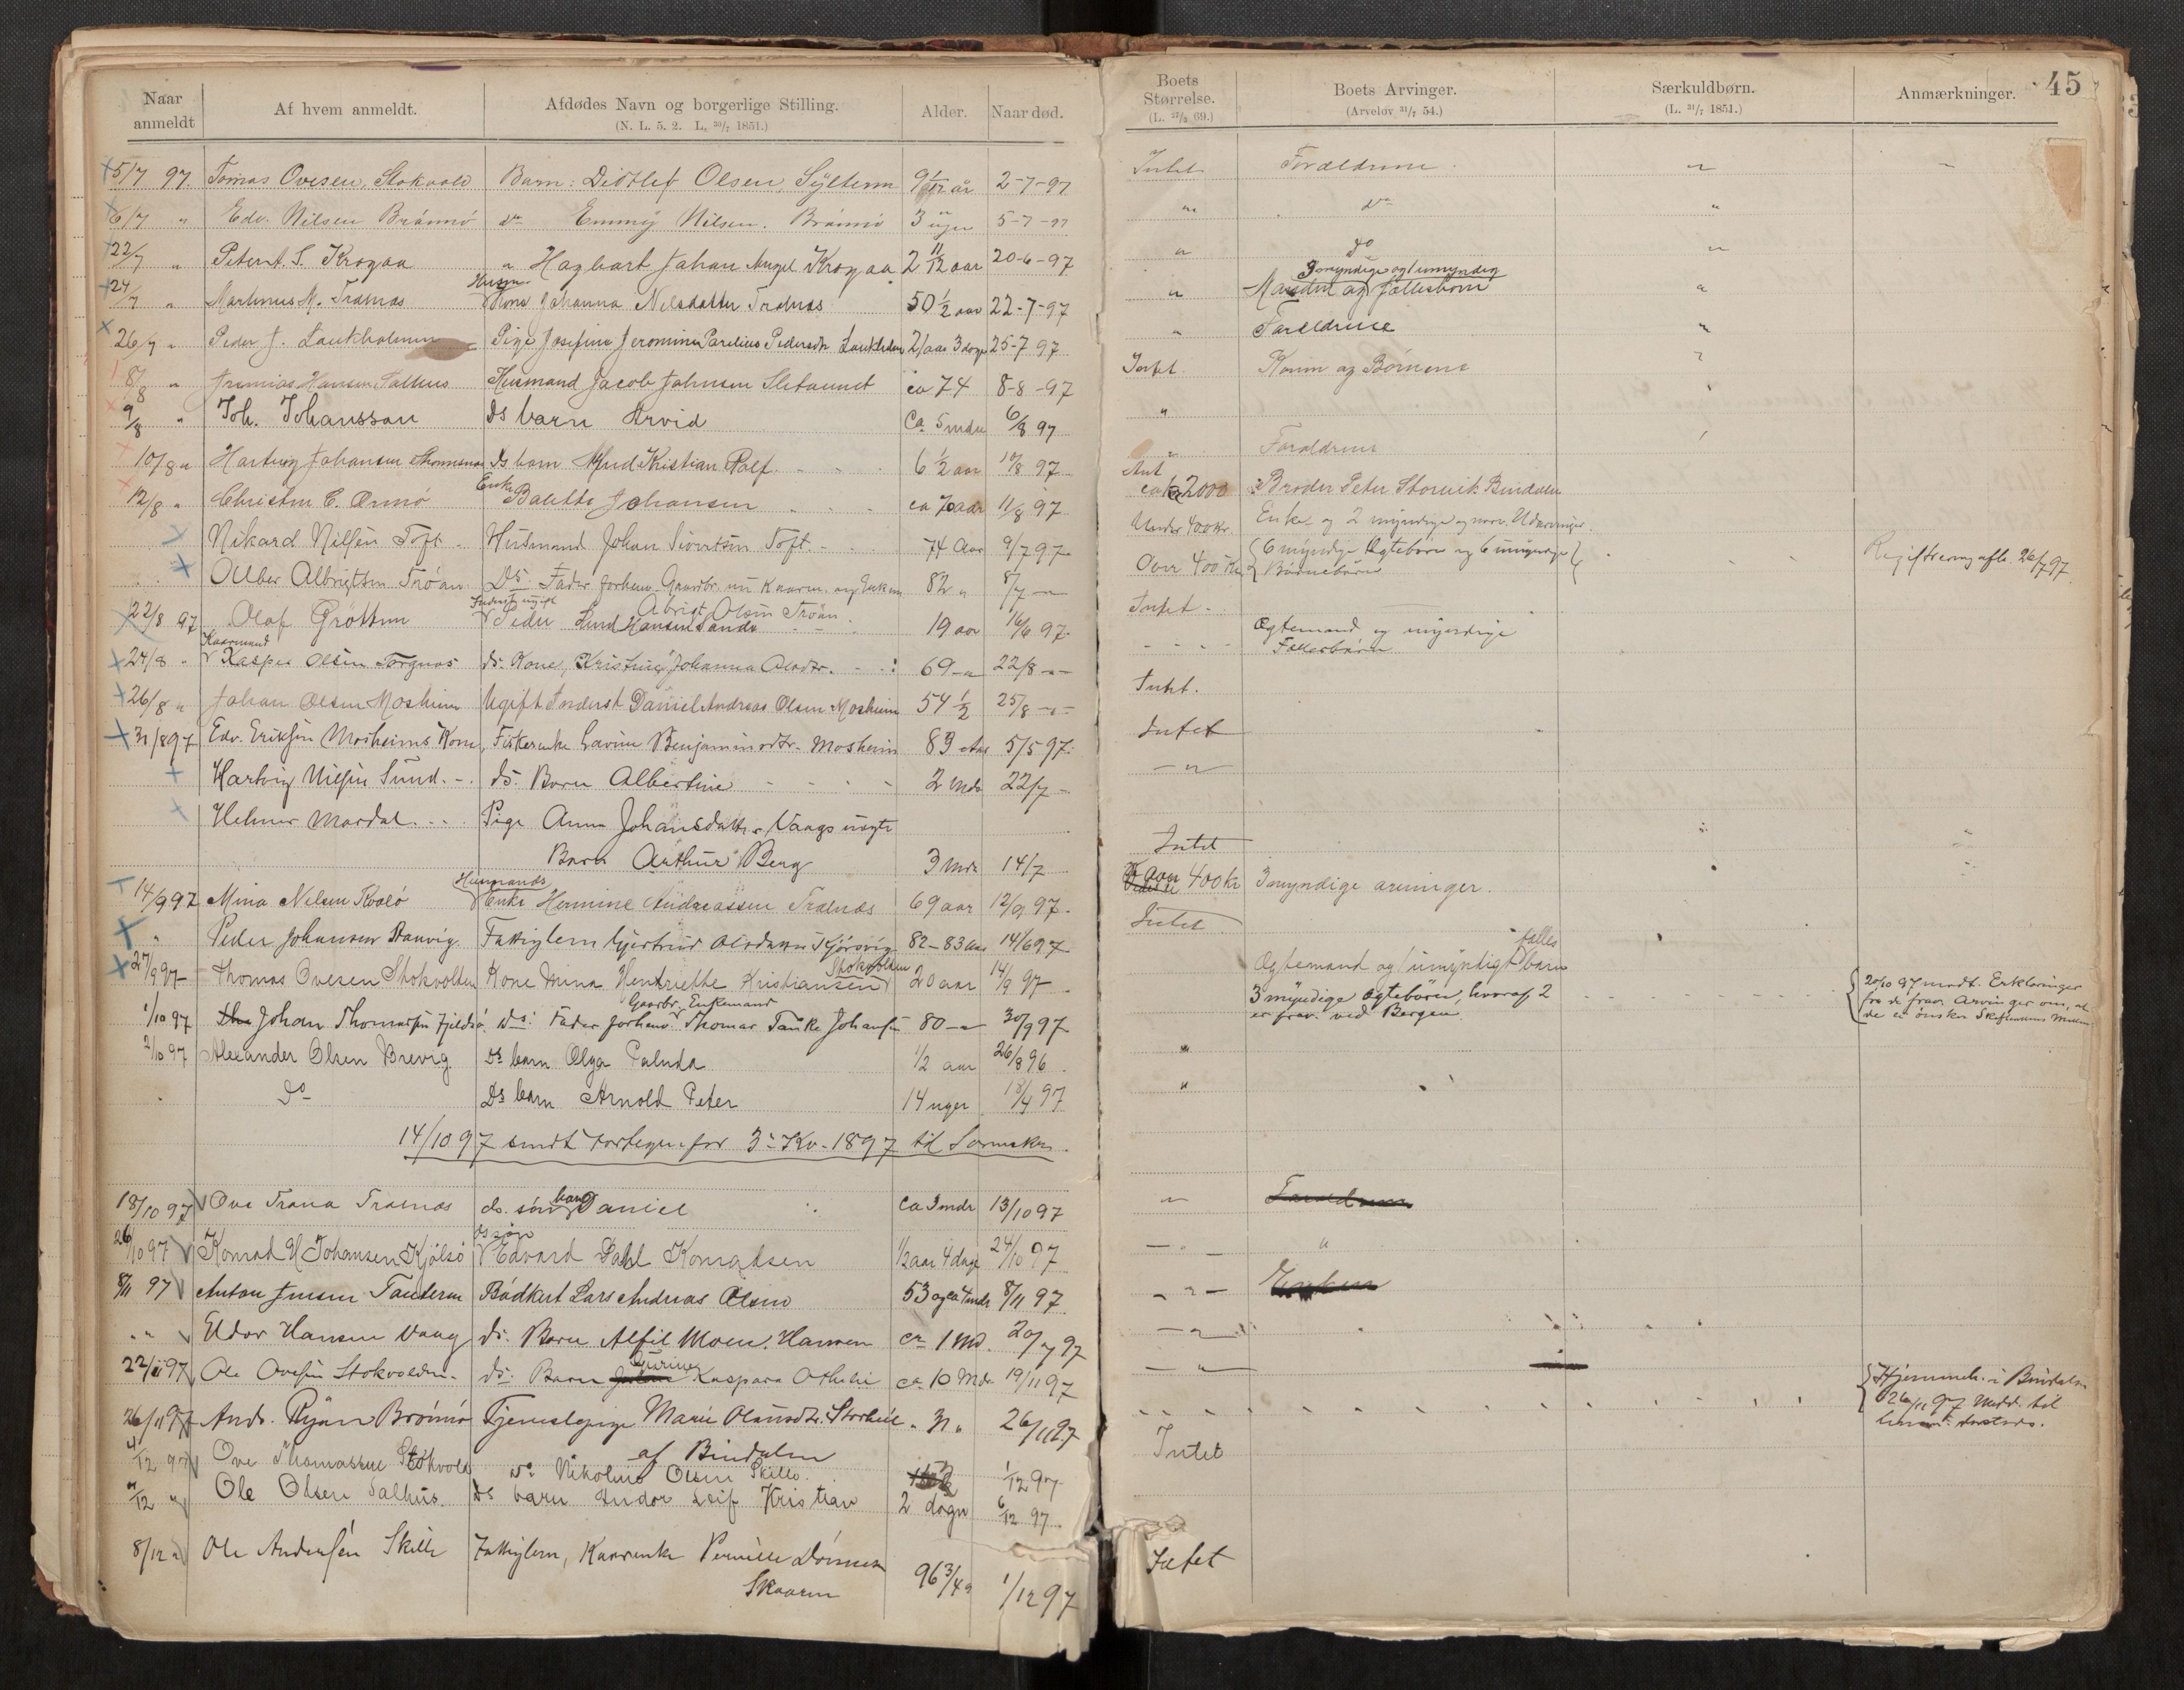 Naar anmeldt | Af hvem anmeldt. | Afdødes Navn og borgerlige Stilling. (N. L. 5. 2. L. 30/7 1851.) | Alder. | Naar død. | Boets Størrelse. (L. 69.) | Boets Arvinger. (Arvelov 31/7 54.) | Særkuldbørn. (L. 31/7 1851.) | Anmærkninger. | 45
5/7 97. | Tomas Ovesen, Stokvold | Barn: Ditlef Olsen Sÿltern | år | 2-7-97 | Intet | Forældrene | " | "
6/7 " | Edv. Nilsen Brånnö | do Emmÿ Nilsen. Brånnö | 3 uger | 5-7-97 | " | do | "
22/7 " | Peter A. S. Krogaa | " Hagbart Johan Angel Krogaa | 2 11/12 aar | 20-6-97 | " | do | "
24/7 " | Martinus M. Trælnæs | Kone Johanna Nilsdatter Trælnæs | 50 1/2 aar | 22-7-97 | " | 3 myndige og 1 umyndig
Manden og fællesbörn | "
26/7 " | Peder J. Laukholmen | Pige Josefine Jeromine Parelius Pedersdtr | 2 aar 3 dage | 25-7 97 | " | Forældrene | "
8/8 " | Jremias Hansen Salhus | Husmand Jacob Johnsen Sletaunet | ca 74 | 8-8-97 | Intet | Konen og Børnene
9/8 " | Joh. Johansson | Ds barn Arvid | Ca. 5 mdr | 6/8 97 | "
10/8 " | Hartvig Johansen Thomsnes | Ds barn Kristian Ralf | 6 1/2 aar | 10/8 97 | " | Forældrene
12/8 " | Christen C. Ormö | Enke Baletta Johansen | ca 70 aar | 11/8 97 | Ant ca kr 2000 | Broder Peter Storvik Bindalen
Nikard Nilsen Toft | Husmand Johan Sivertsen Toft | 74 Aar | 9/7 97 | Under 400 kr | Enke og 2 myndige Udarvinger
Olber Albrigtsen Tröan | Ds Fader forhenv. Gaardbr. nu Kaarm. og Enkem.
Abrigt Olsen Tröan | 82 " | 8/7 " | Over 400 Kr | 6 myndige Ægtebörn og 6 umyndige
Börnebörn | Registrering afh. 26/7 97
22/8 97 | Olaf Gröttem | Inderst ugift
Peder Lund Hansen Sande | 19 aar | 16/6 97 | Intet
24/8 " | Kaarmand
Kasper Olsen Torgnæs | ds. Kone, Kristine Johanna Olsdtr. | 69 " | 22/8 " | Ægtemand og myndige
Fællesbörn
26/8 " | Johan Olsen Mosheim | Ugift Inderst Daniel Andreas Olsen Mosheim | 54 1/2 | 25/8 " | Intet.
31/8 97 | Edv. Eriksen Mosheims Kone, | Fiskerenke Lavine Benjaminsdtr. Mosheim | 83 Aar | 5/5 97. | Intet
Hartvig Nilsen Sund. | ds. Barn Albertine | 2 Mdr | 22/7 | "
Helmer Mardal. | Pige Anna Johansdatter Vaags uægte
Barn Arthur Berg | 3 Mdr | 14/7 | Intet
14/9 97 | Mina Nelsen Kvalö | Husmands
Enke Hermine Andreassen Trælnæs | 69 aar | 12/9 97. | 400 kr | 3 myndige arvinger.
" | Peder Johansen Ranvig | Fattiglem Gjertrud Olsdatter | 82-83 aar | 14/6 97 | Intet
27/9 97 | Thomas Ovesen Stokvolden | Kone Anna Hendriette Kristiansen Stokvolden | 20 aar | 14/9 97 | Ægtemand og 1 umyndigt fælles barn
1/10 97 | Johan Thomassen Fjeldsö | Ds. Fader forhenv. Gaardbr. Enkemand Thomas Tanke Johansen | 80 " | 30/9 97 | 3 myndige ægtebörn, hvoraf 2
er frav. ved Bergen | 20/10 97 modt. Erkleringer
fra de frav. Arvinger om, at
de ei önsker
2/10 97 | Alexander Olsen Brevig. | Ds barn Olga Paluda | 1/2 aar | 26/8 96 | "
" | Do | Ds barn Arnold Peter | 14 uger | 97 | "
14/10 97 sendt Fortegn. for 3die Kv. 1897 til Sornsken.
18/10 97 | Ove Trana Trælnæs | ds. barn Daniel | Ca 3 mdr | 13/10 97 | " | Forældrene
26/10 97 | Konrad H Johansen Kjölsö | ds søn
Edvard Dahl Konradsen | 1/2 aar 4 dage | 24/10 97 | " | "
8/11 97 | Anton Jensen Tanderm | Bådkert Lars Andreas Olsen | 53 og ca 4 mdr | 8/11 97 | " | Enken
" " | Eldor Hansen Vaag | ds. Barn Alfil Moen Hansen | ca 1 Md. | 20/7 97 | "
22/11 97 | Ole Ovesen Stokvolden. | ds. Barn Kaspara Othelie | ca 10 Mdr | 19/11 97 | "
26/11 97 | Andr. Ryan Brönnö | Tjenestepige Marie Olausdtr. Storheil
af Bindalen | " 31 " | 26/11 97 | Hjemmeh. i Bindalen
26/11 97 Medd. til
4/12 97 | Ove Thomassen Stokvold | do Nikoline Olsen Skille. | 1/12 97 | Intet
7/12 " | Ole Olsen Salhus. | Ds barn Indor Leif Kristian | 2 dogn | 6/12 97
8/12 " | Ole Andersen Skille | Fattiglem, Kaarenke Pernille
Skaaren | 96 3/4 a | 1/12 97 | Intet